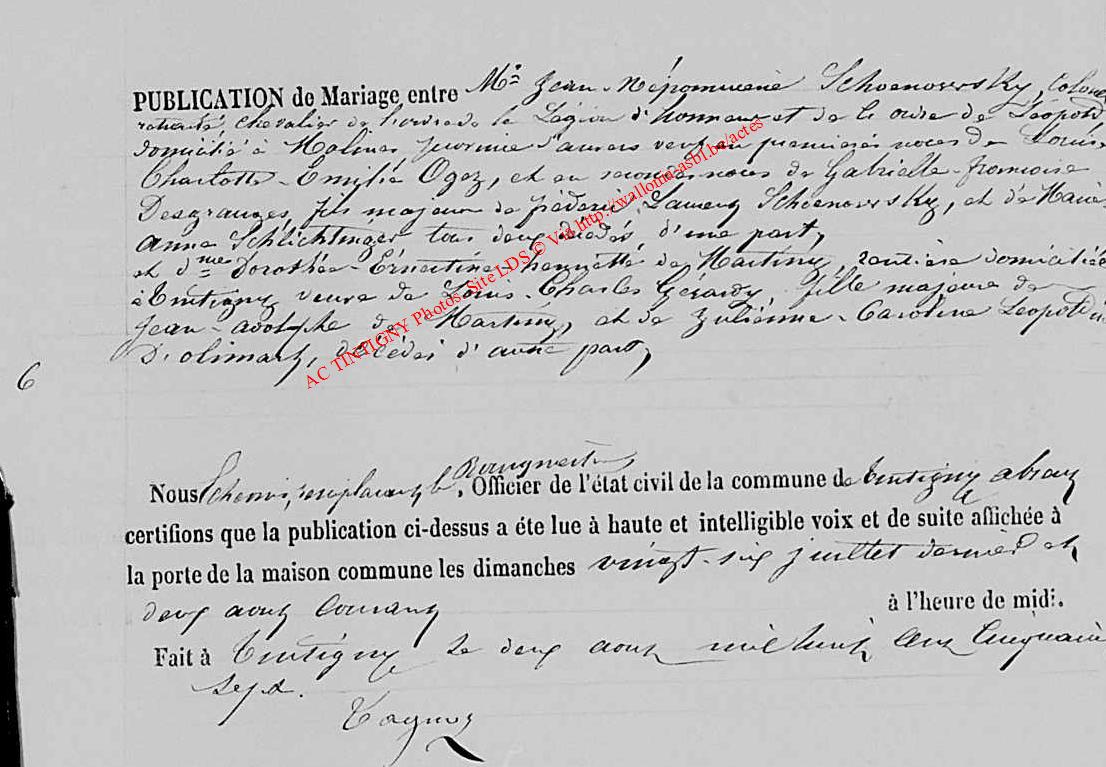 PUBLICATION de Mariage entre Mr Jean-Népomucène Schoenowsky, Colonel
retraité, chevalier de l'ordre de la Légion d'honneur et de l'ordre de Léopold
domicilié à Malines province d'anvers veuf en premières noces de Louise
Charlotte-Emilie Ogez, et en secondes noces de Gabrielle-françoise
Desgranges, fils majeur de fréderic Schoenowsky, et de Marie
Anne Schlichtinger tous deux d'une part,
et dme Dorothée-Ernestine-henriette de Martiny, rentière domiciliée
à Tintigny veuve de Louis-Charles Gerardy, fille majeure de
Jean-adolphe de Martiny, et de Julienne-Caroline Léopoldine
D'olimart, décédés d'autre part,
6
Nous remplaçant le Bourgmestre, Officier de l'état civil de la commune de Tintigny
certifions que la publication ci-dessus a éte lue à haute et intelligible voix et de suite affichée à
la porte de la maison commune les dimanches vingt-six juillet dernier et
deux aout courant à l'heure de midi.
Fait à Tintigny le deux aout mil huit cent cinquante
sept.
AC TINTIGNY Photos Site LDS © Via http://wallonia-asbl.be/actes